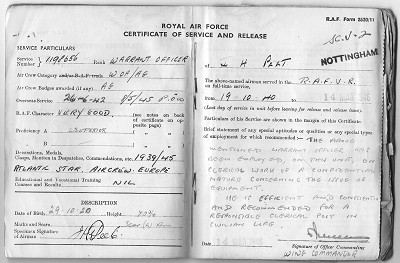 ROYAL AIR FORCE
CERTIFICATE OF SERVICE AND RELEASE
R.A.F. Form 2520/11
SERVICE PARTICULARS
Service Number 1198656 Rank WARRANT OFFICER
Air Crew Category and/or R.A.F. trade W OP/AG
Air Crew Badges awarded (if any) AG
Overseas Service 26-6-42
R.A.F. Character VERY GOOD. (see notes on back of certificate on opposite page)
Proficiency A SUPERIOR
B
Decorations, Medals,
Clasps, Mention in Despatches, Commendations, etc. 1939/45
ATLANTIC STAR. AIRCREW EUROPE
Educational and Vocational Training
Courses and Results NIL
DESCRIPTION
Date of Birth 29.10.20 Height
Marks and Scars
Specimen Signature of Airman
NOTTINGHAM
of H PEET
The above-named airman served in the R.A.F.V.R.
on full-time service,
from 19.10.40 to
(Last day of service in unit before leaving for release and release leave).
Particulars of his Service are shown in the margin of this Certificate.
Brief statement of any special aptitudes or qualities or any special types of employment for which recommended:— THE ABOVE
MENTIONED WARRANT OFFICER HAS
BEEN EMPLOYED, ON THIS UNIT, ON
CLERICAL WORK OF A CONFIDENTIAL
NATURE CONCERNING THE ISSUE OF
EQUIPMENT.
HE IS EFFICIENT AND
AND RECOMMENDED FOR A
RESPONSIBLE CLERICAL POST IN
CIVILIAN LIFE.
Date
Signature of Officer Commanding
WING COMMANDER